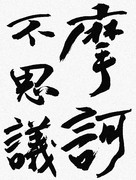 摩訶
不思議